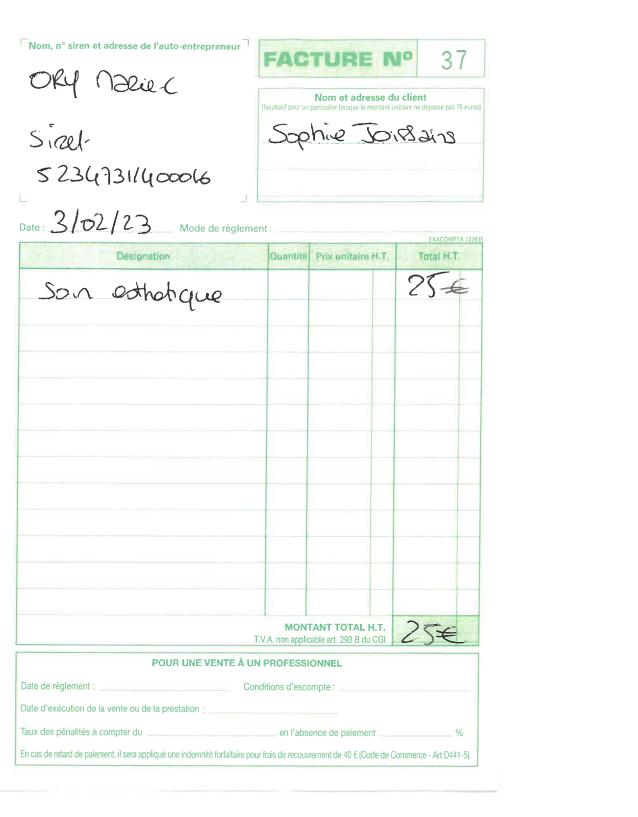 Nom, n° siren et adresse de l'auto-entrepreneur
FACTURE N° 37
ORY Marie C
Siret
52347311400016
Nom et adresse du client
(facultatif pour un particulier lorsque le montant unitaire ne dépasse pas 76 euros)
Sophie Joissains
Date : 3/02/23 Mode de règlement :
EXACOMPTA 13283E
Désignation Quantité Prix unitaire H.T. Total H.T.
Soin esthetique 25€
MONTANT TOTAL H.T. 25€
T.V.A. non applicable art. 293 B du CGI
POUR UNE VENTE À UN PROFESSIONNEL
Date de règlement : Conditions d'escompte :
Date d'exécution de la vente ou de la prestation :
Taux des pénalités à compter du en l'absence de paiement %
En cas de retard de paiement, il sera appliqué une indemnité forfaitaire pour frais de recouvrement de 40 € (Code de Commerce - Art D441-5).